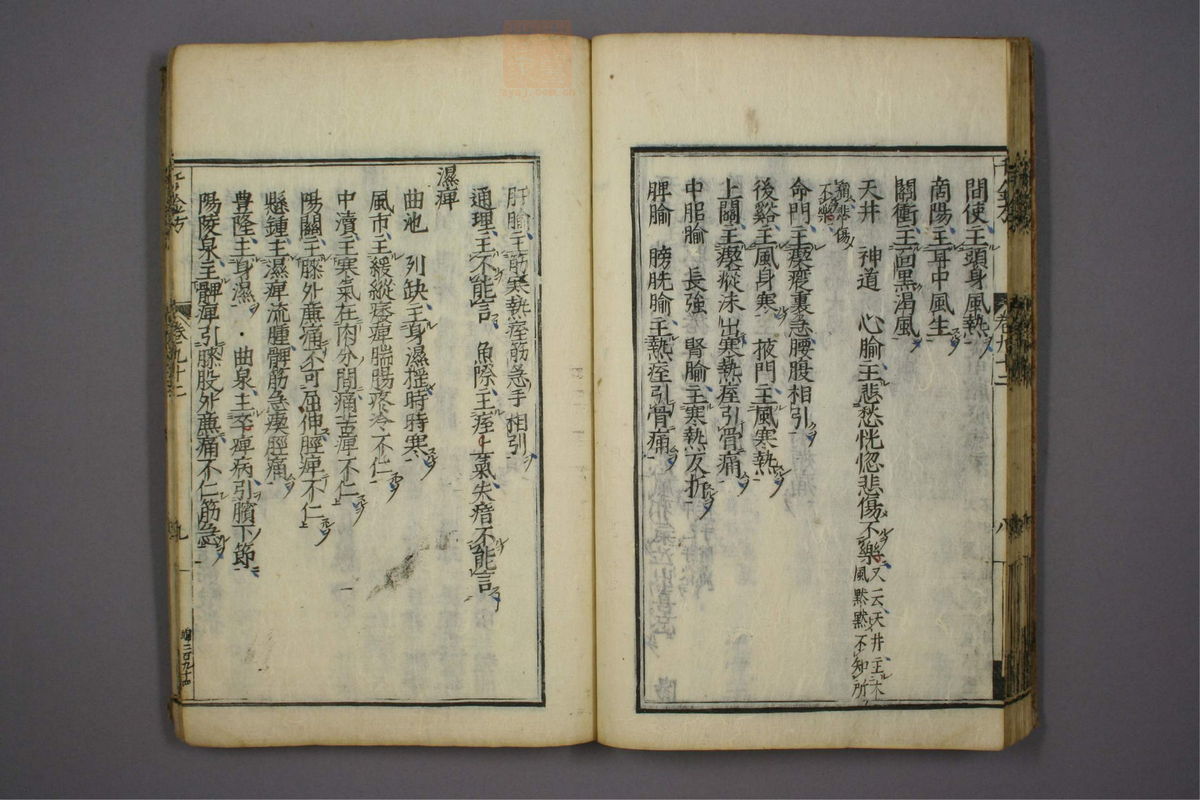 間使主頭身風熱
商陽主耳中風生
關衝主面黑渴風
天井 神道 心腧主悲愁恍惚悲傷不樂又云天井主大風黙黙不知所
痛悲傷不樂
命門主瘈瘲裏急腰腹相引
後谿主風身寒 掖門主風寒熱
上關主瘈瘲沫出寒熱痓引骨痛
中膂腧 長強 腎腧主寒熱反折
脾腧 膀胱腧主熱痓引骨痛
肝腧主筋寒熱痓筋急手相引
通理主不能言 魚際主痓上氣失瘖不能言
濕痺
曲池 列缺主身濕揺時時寒
風市主緩縱痿痺腨腸疼冷不仁
中瀆主寒氣在肉分間痛苦痺不仁
陽關主膝外廉痛不可屈伸脛痺不仁
懸鍾主濕痺流腫髀筋急瘈脛痛
豊隆主身濕 曲泉主卒痺病引臏下節
陽陵泉主髀痺引膝股外廉痛不仁筋急
千金方
卷九十二
八
卷九十二
九